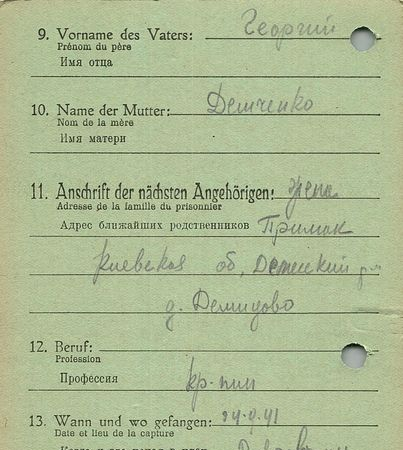 9. Vorname des Vaters: Георгий
Prénom du père
Имя отца
10. Name der Mutter: Демченко
Nom de la mère
Имя матери
11. Anschrift der nächsten Angehörigen: жена
Adresse de la famille du prisonnier
Адрес ближайших родственников Примак
Киевская об,
д. Демидово
12. Beruf:
Profession
Профессия
13. Wann und wo gefangen: 24.9.41
Date et lieu de la capture